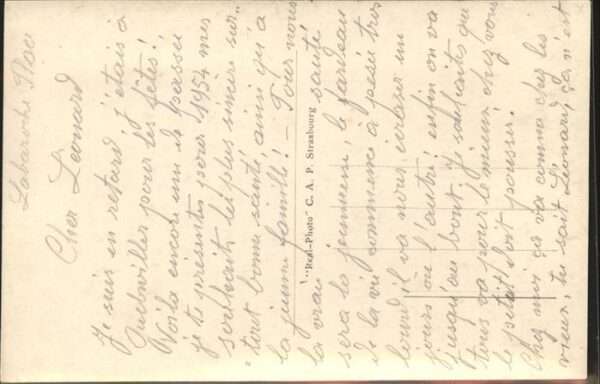 Labaroche
Cher Léonard
Je suis en retard, j'étais à
Guebwiller pour les fêtes!
Voilà encore une de passée
je te présente pour 1954 mes
souhaits les plus sincère sur-
tout bonne santé, ainsi qu'à
la jeune famille! — Pour nous
la vrai santé
sera la jeunesse, le fardeau
de la vie commence à peser tros
lourd, il va nous écraser un
jours ou l'autre, enfin on va
jusqu'au bout, je souhaites que
tous va pour le mieux chez vous
le petit doit pousser.
Chez moi ça va comme chez les
vieux, tu sait Léonard, ça n'est
"Real-Photo" C. A. P. Strasbourg